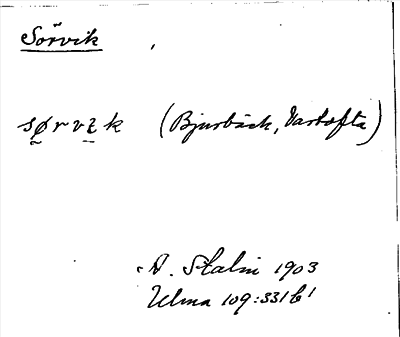 Sörvik
sørvɩk (Bjurbäck, Vartofta)
A. Stalin 1903
Ulma 109:331 b1